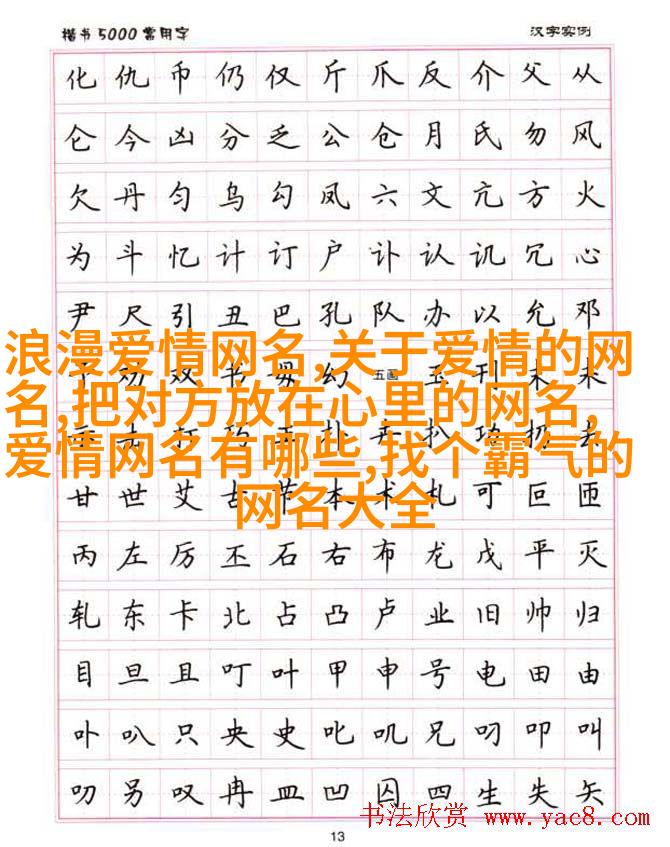 楷书5000常用字 汉字实例
化 仇 币 仍 仅 斤 爪 反 介 父 从
仑 今 凶 分 乏 公 仓 月 氏 勿 风
欠 丹 匀 乌 勾 凤 六 文 亢 方 火
为 斗 忆 计 订 户 讣 认 讥 冗 心
尹 尺 引 丑 巴 孔 队 办 以 允 邓
浪漫爱情网名,关于爱情的网
名,把对方放在心里的网名,
爱情网名有哪些,找个霸气的
网名大全
劝 双 书 毋 幻 五画 玉 刊 末 未
甘 世 艾 古 节 本 术 札 可 叵 匝
丙 左 厉 丕 石 右 布 龙 戊 平 灭
轧 东 卡 北 占 凸 卢 业 旧 帅 归
目 旦 且 叮 叶 甲 申 号 电 田 由
卟 叭 只 央 史 叱 叽 兄 叼 叩 叫
叨 另 叹 冉 皿 凹 囚 四 生 失 矢
书法欣赏 www.yac8.com
13